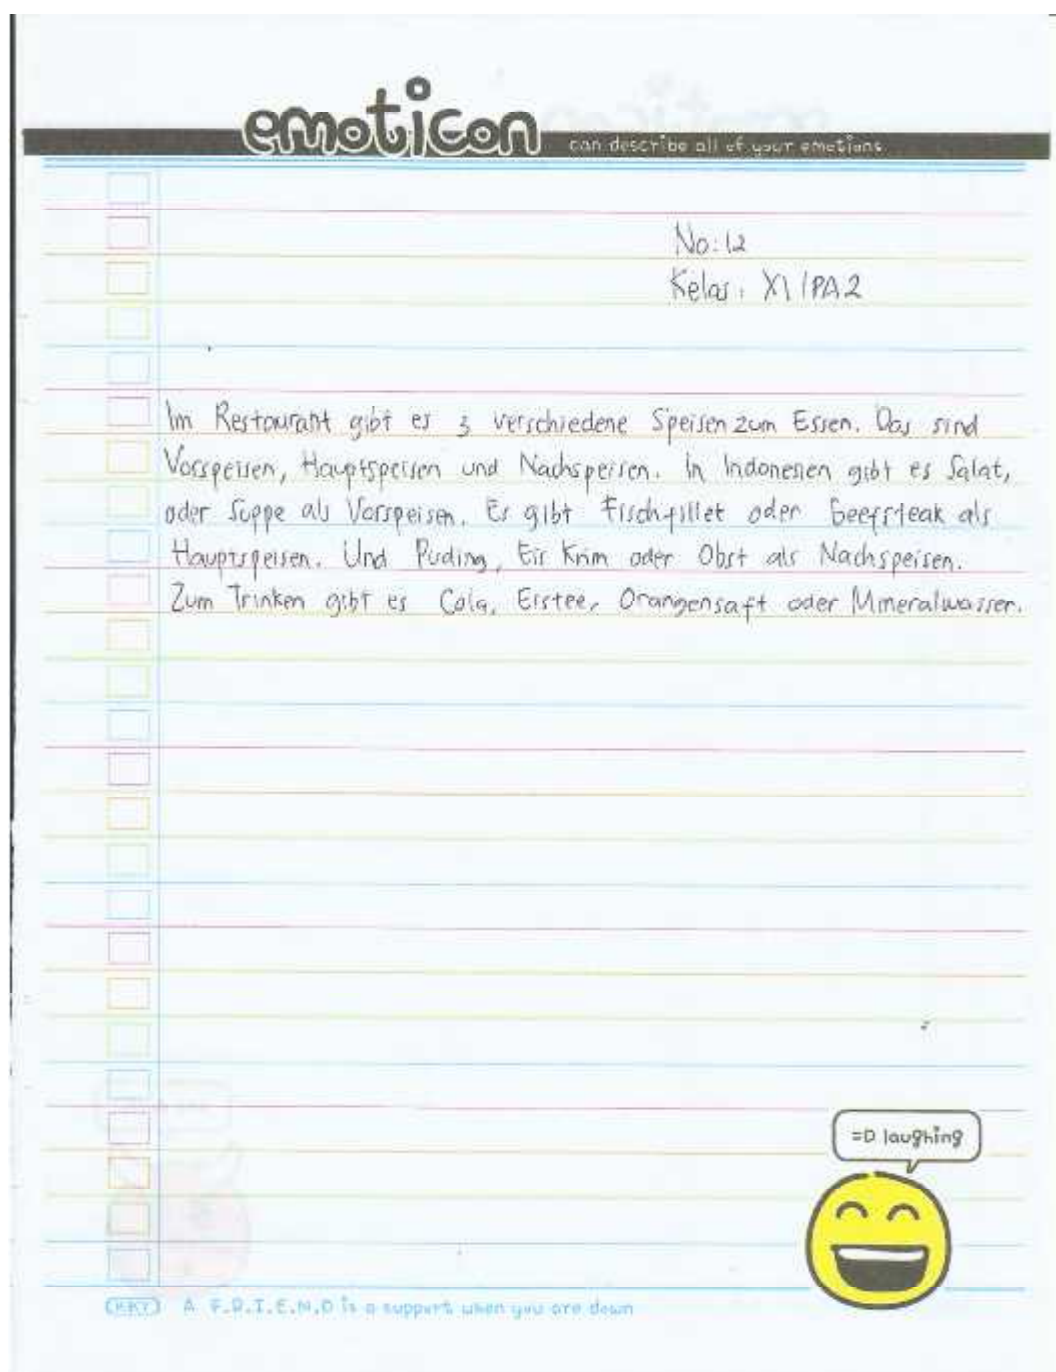 emoticon
can describe all of your emotions
No: 12
Kelas : XI IPA 2
Im Restourant gibt es 3 verschiedene Speisen zum Essen. Das sind
Vorspeisen, Hauptspeisen und Nachspeisen. In Indonesien gibt es Salat,
oder Suppe als Vorspeisen. Es gibt Fischfillet oder Beefsteak als
Hauptspeisen. Und Puding, Eis Krim oder Obst als Nachspeisen.
Zum Trinken gibt es Cola, Eistee, Orangensaft oder Mineralwasser.
=D laughing
A F.R.I.E.N.D is a support when you are down